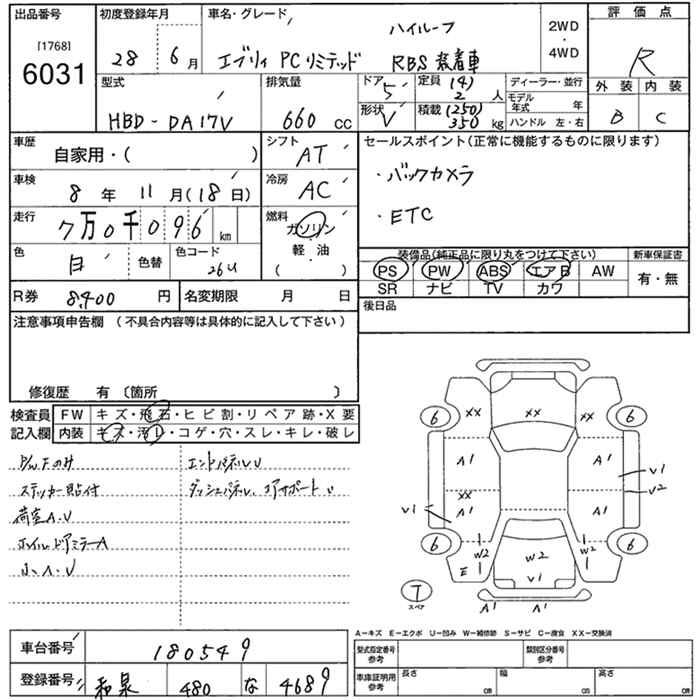 出品番号 初度登録年月 車名・グレード 評価点
[1768] ハイルーフ 2WD
6031 28 6月 エブリィ PCリミテッド RBS装着車 4WD R
型式 排気量 ドア 5 定員 (4) 2 人 ディーラー・並行 外装 内装
HBD-DA17V 660 CC 形状 V 積載 (250) 350 kg モデル年式 年 B C
ハンドル 左・右
車歴 シフト セールスポイント(正常に機能するものに限ります)
自家用・( ) AT ・バックカメラ
車検 冷房
8 年 11 月(18 日) AC ・ETC
走行 燃料
7万0千096 km ガソリン
色 色替 色コード 軽・油 装備品(純正品に限り丸をつけて下さい) 新車保証書
白 26U ( ) PS PW ABS エアB AW 有・無
SR ナビ TV カワ
R券 8,400 円 名変期限 月 日 後日品
注意事項申告欄 (不具合内容等は具体的に記入して下さい)
修復歴 有 〔箇所 〕
検査員 FW キズ・飛石・ヒビ割・リペア跡・X要
記入欄 内装 キズ・汚レ・コゲ・穴・スレ・キレ・破レ
P/W Fのみ エントパネルU
ステッカー貼付
荷室A.U
A
小 A.U
XX XX XX
6 6
A1 A1 V1
XX V2
V1 A1 A1
6 6
W2 W2 W2
E V1
T
スペア A1 A1
A-キズ E-エクボ U-凹み W-補修跡 S-サビ C-腐食 XX-交換済
車台番号 180549 型式指定番号 参考 類別区分番号 参考
登録番号 和泉 480 な 4689 車庫証明用 参考 長さ cm 幅 cm 高さ cm